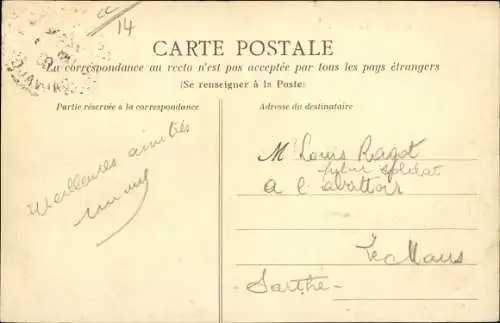 14
CARTE POSTALE
La correspondance au recto n'est pas acceptée par tous les pays étrangers
(Se renseigner à la Poste)
Partie réservée à la correspondance
Adresse du destinataire
Meilleures amitiés
Mr Louis Ragot
futur soldat
a l'abattoir
Le Mans
- Sarthe -